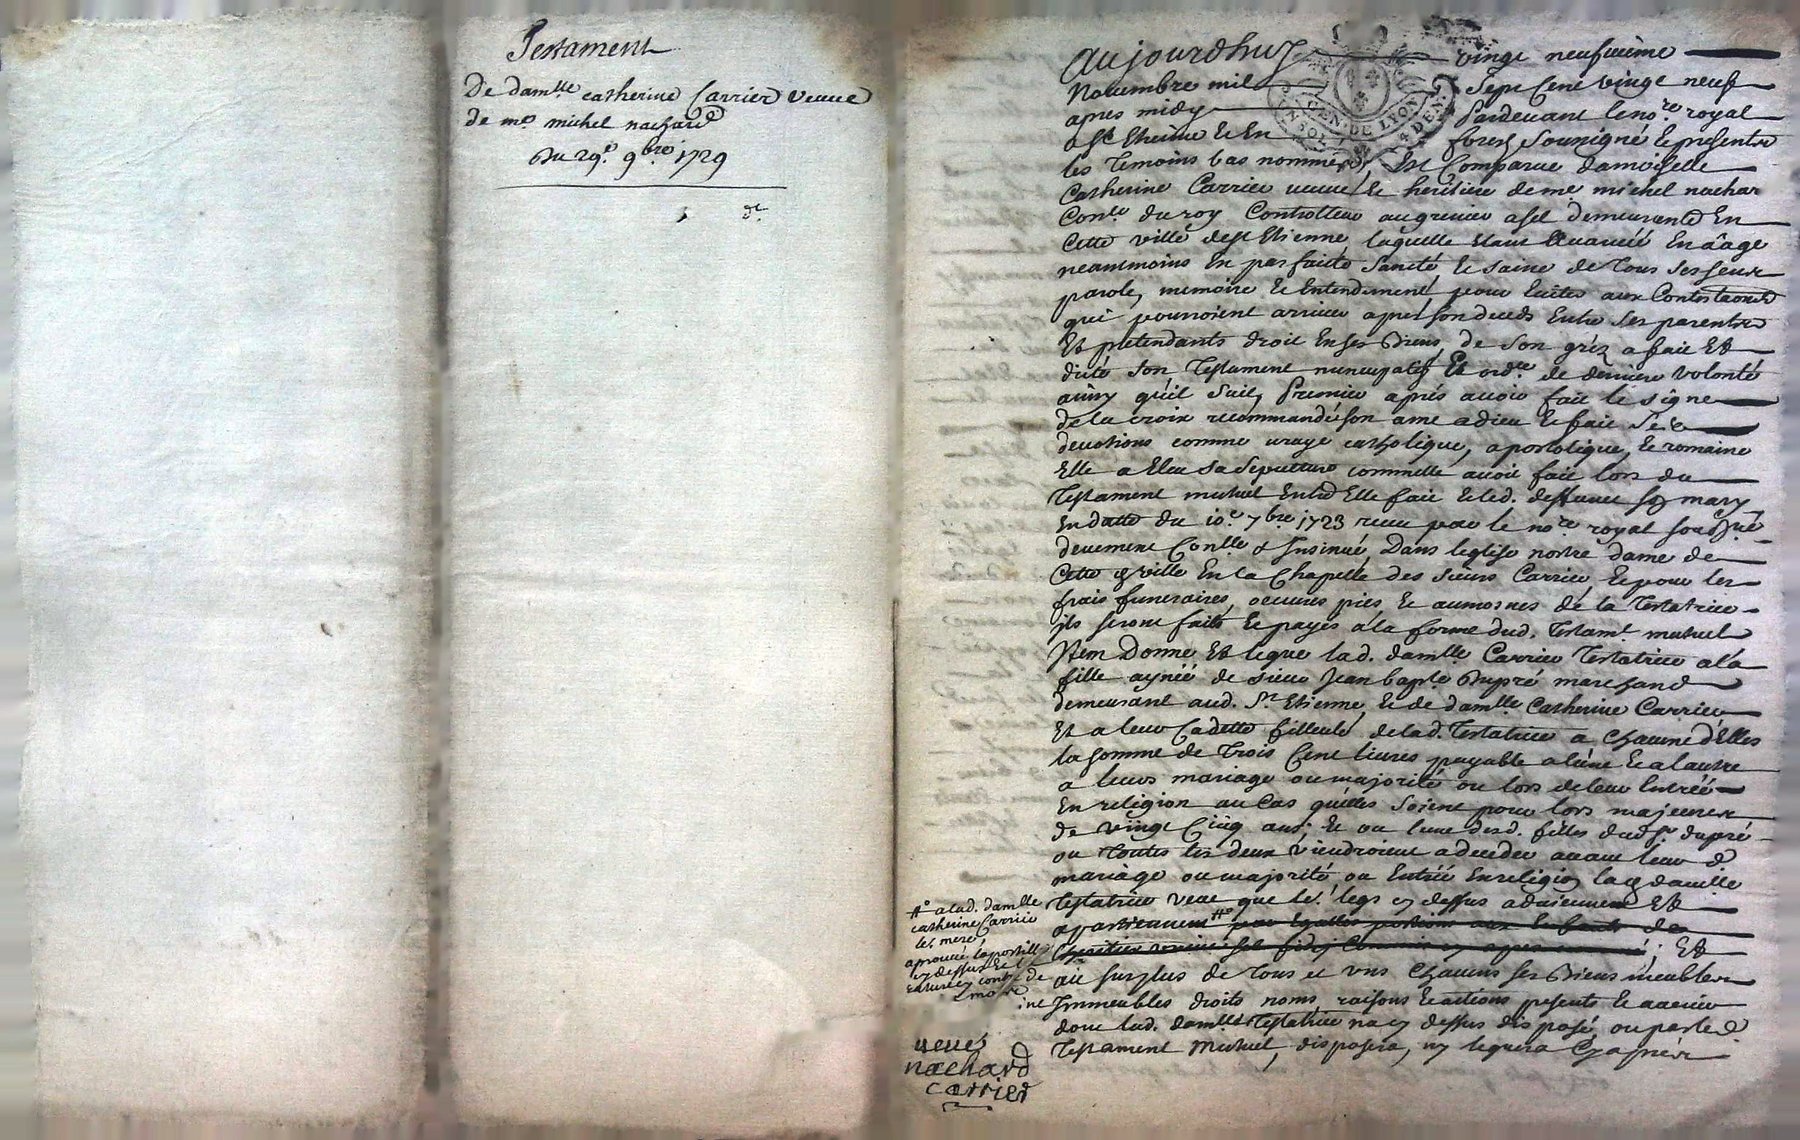 Testament
De dam.lle catherine Carrier veuve
de m.e michel nachard
Du 29.e 9.bre 1729
aujourdhuy vingt neufuieme
Novembre mil sept Cent vingt neuf
apres midy Pardevant le no.re royal
a S.t Etienne Et En forez Soussigné Et presents
les Temoins bas nommés, Est Comparue damoiselle
Catherine Carrier veuve Et heritiere de me michel nachar
Con.er du roy Controlleur au grenier a sel demeurante En
Cette ville de st Etienne, laquelle Etant avancéé En aâge
neantmoins En parfaitte Santé, Et saine de tous ses sens
parole, memoire Et Entendement, pour Eviter aux Contestaons
qui pourroient arriver apres son deceds Entre ses parents
Et pretendants droit En ses Biens, de son gréz a fait Et
dicté son Testament nuncupatif Et ord.ce de derniere volonté
ainsy qu'il suit, Premier aprés avoir fait le signe
de la croix recommandé son ame a dieu Et fait ses
devotions comme vraye catholique, apostolique, Et romaine
Elle a Eleu sa sepulture comm'elle avoit fait lors du
Testament mutuel Entre Elle fait Et led. deffunct sr mary
En datte du 10.e 7.bre 1723 receu par le no.re royal soussigné
deuement Con.llé & Insinué, Dans l'eglise nostre dame de
Cette ville En la Chapelle des sieurs Carrier, Et pour les
frais funeraires, oeuvres pies Et aumosnes de la Testatrice
ils seront faits Et payés a la forme dud. Testam.t mutuel
Item Donne Et legue lad. dam.lle Carrier Testatrice a la
fille aynéé de sieur Jean bapt.e Dupré marchand
demeurant aud. S.t Etienne, Et de dam.lle Catherine Carrier
Et a leur Cadette filleule de lad. Testatrice a chacune d'Elles
la somme de Trois Cent livres payable a l'une Et a l'autre
a leurs mariage ou majorité ou lors de leur Entréé
En religion au Cas qu'elles soient pour lors majeures
de vingt Cinq ans; Et ou l'une desd. filles dud. sr. dupré
ou Toutes les deux viendroient a deceder avant leur
mariage ou majorité ou Entréé En religion lad. dam.lle
Testatrice veut que le legs cy dessus advienne Et
apartienne par Egalles portions aux Enfants de
; Et
au surplus de tous et uns Chacuns ses Biens meubles
Immeubles droits noms raisons Et actions presents Et avenir
dont lad. dam.lle Testatrice n'a cy dessus disposé, ou par led.
Testament Mutuel, disposera, ny leguera Cy apres
# a lad. dam.lle
catherine Carrier
leur mere,
aprouvé l'apostille
cy dessus Et la
veuve
nachard
carrier